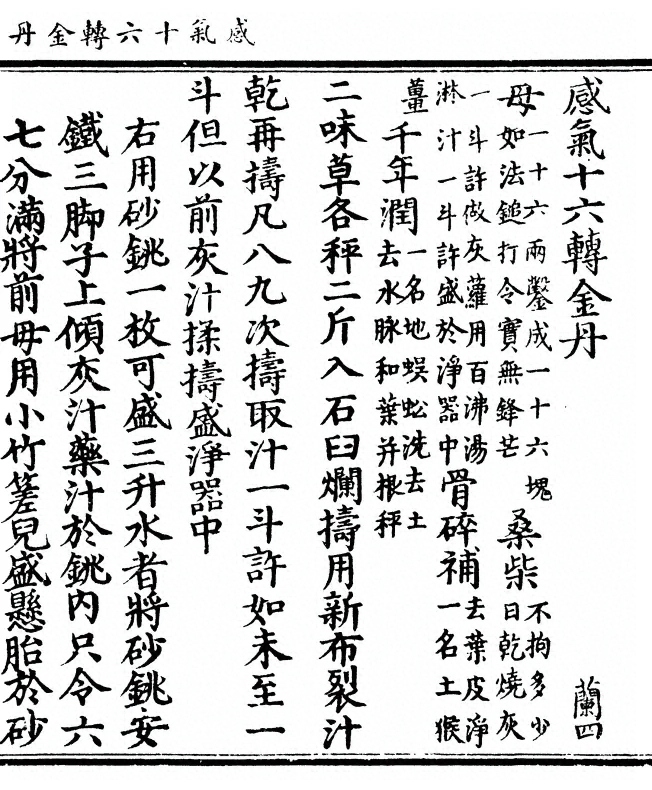 感氣十六轉金丹
感氣十六轉金丹 蘭四
母一十六兩鑿成一十六塊如法鎚打令實無鋒芒桑柴不拘多少日乾燒灰
一斗許做灰蘿用百沸湯淋汁一斗許盛於淨器中骨碎補去葉皮淨一名土猴
薑千年潤一名地蜈蚣洗去土去水脉和葉并根秤
二味草各秤二斤入石臼爛擣用新布裂汁
乾再擣凡八九次擣取汁一斗許如未至一
斗但以前灰汁揉擣盛淨器中
右用砂銚一枚可盛三升水者將砂銚安
鐵三脚子上傾灰汁藥汁於銚內只令六
七分滿將前母用小竹兒盛懸胎於砂